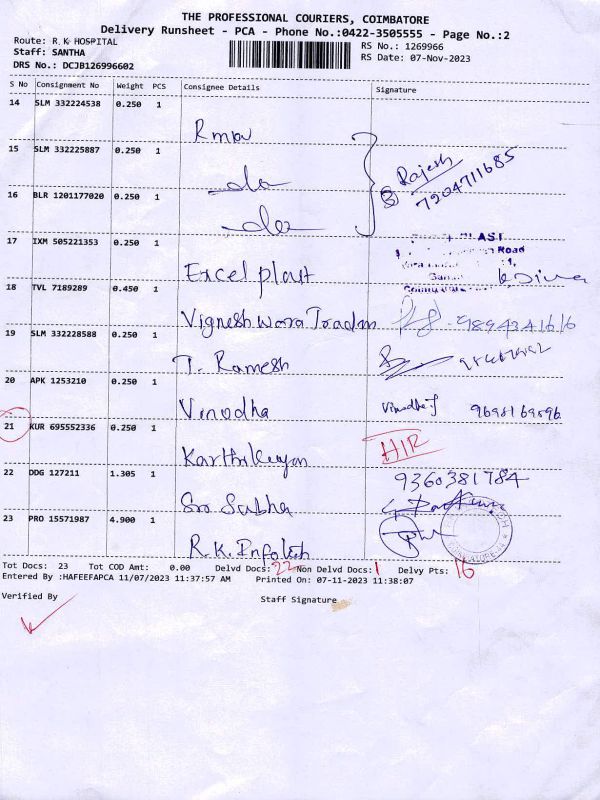 THE PROFESSIONAL COURIERS, COIMBATORE
Delivery Runsheet - PCA - Phone No.:0422-3505555 - Page No.:2
Route: R.K HOSPITAL
RS No.: 1269966
Staff: SANTHA
RS Date: 07-Nov-2023
DRS No.: DCJB126996602
S No Consignment No Weight PCS Consignee Details Signature
14 SLM 332224538 0.250 1
15 SLM 332225887 0.250 1 do Rajesh 7204711685
16 BLR 1201177020 0.250 1 do
17 IXM 505221353 0.250 1 Excel plast
18 TVL 7189289 0.450 1 Vigneshwara 9894341616
19 SLM 332228588 0.250 1 T. Ramesh
20 APK 1253210 0.250 1 Vinodha
21 KUR 695552336 0.250 1 Karthikeyan
22 DDG 127211 1.305 1 Sri Subha 9360381784
23 PRO 15571987 4.900 1 R.K.
Tot Docs: 23 Tot COD Amt: 0.00 Delvd Docs: 22 Non Delvd Docs: 1 Delvy Pts: 16
Entered By :HAFEEFAPCA 11/07/2023 11:37:57 AM Printed On: 07-11-2023 11:38:07
Verified By Staff Signature